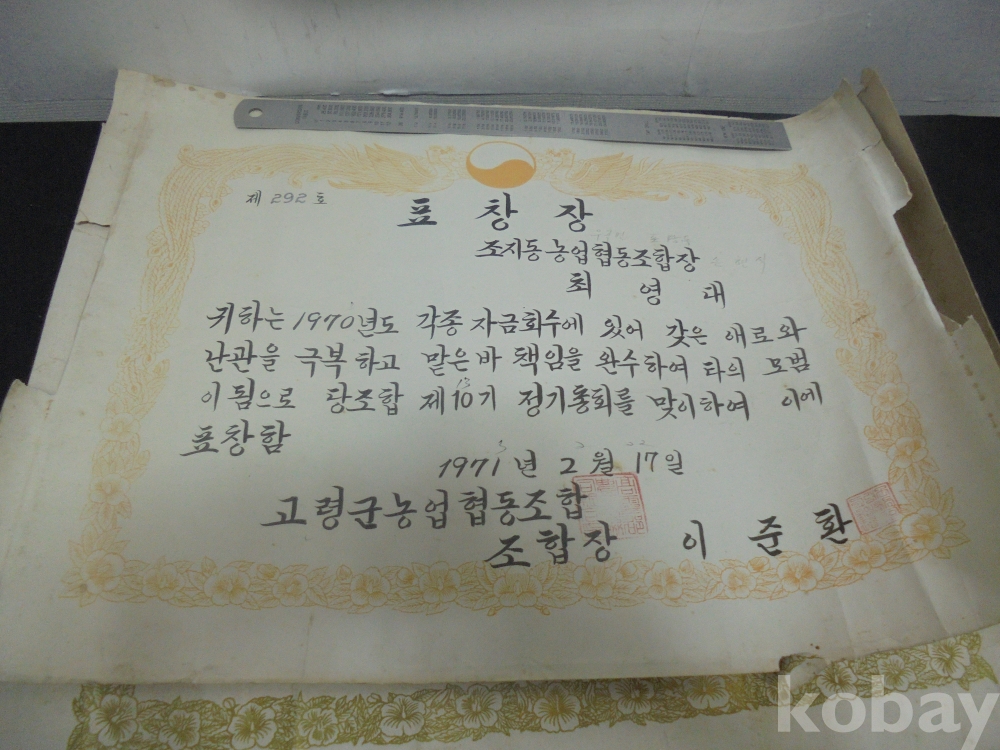 제 292 호
표 창 장
조지동농업협동조합장
최 영 대
귀하는 1970년도 각종 자금회수에 있어 갖은 애로와
난관을 극복하고 맡은바 책임을 완수하여 타의 모범
이 됨으로 당조합 제10기 정기총회를 맞이하여 이에
표창함
1971년 2월 17일
고령군농업협동조합
조합장 이 준 환
kobay